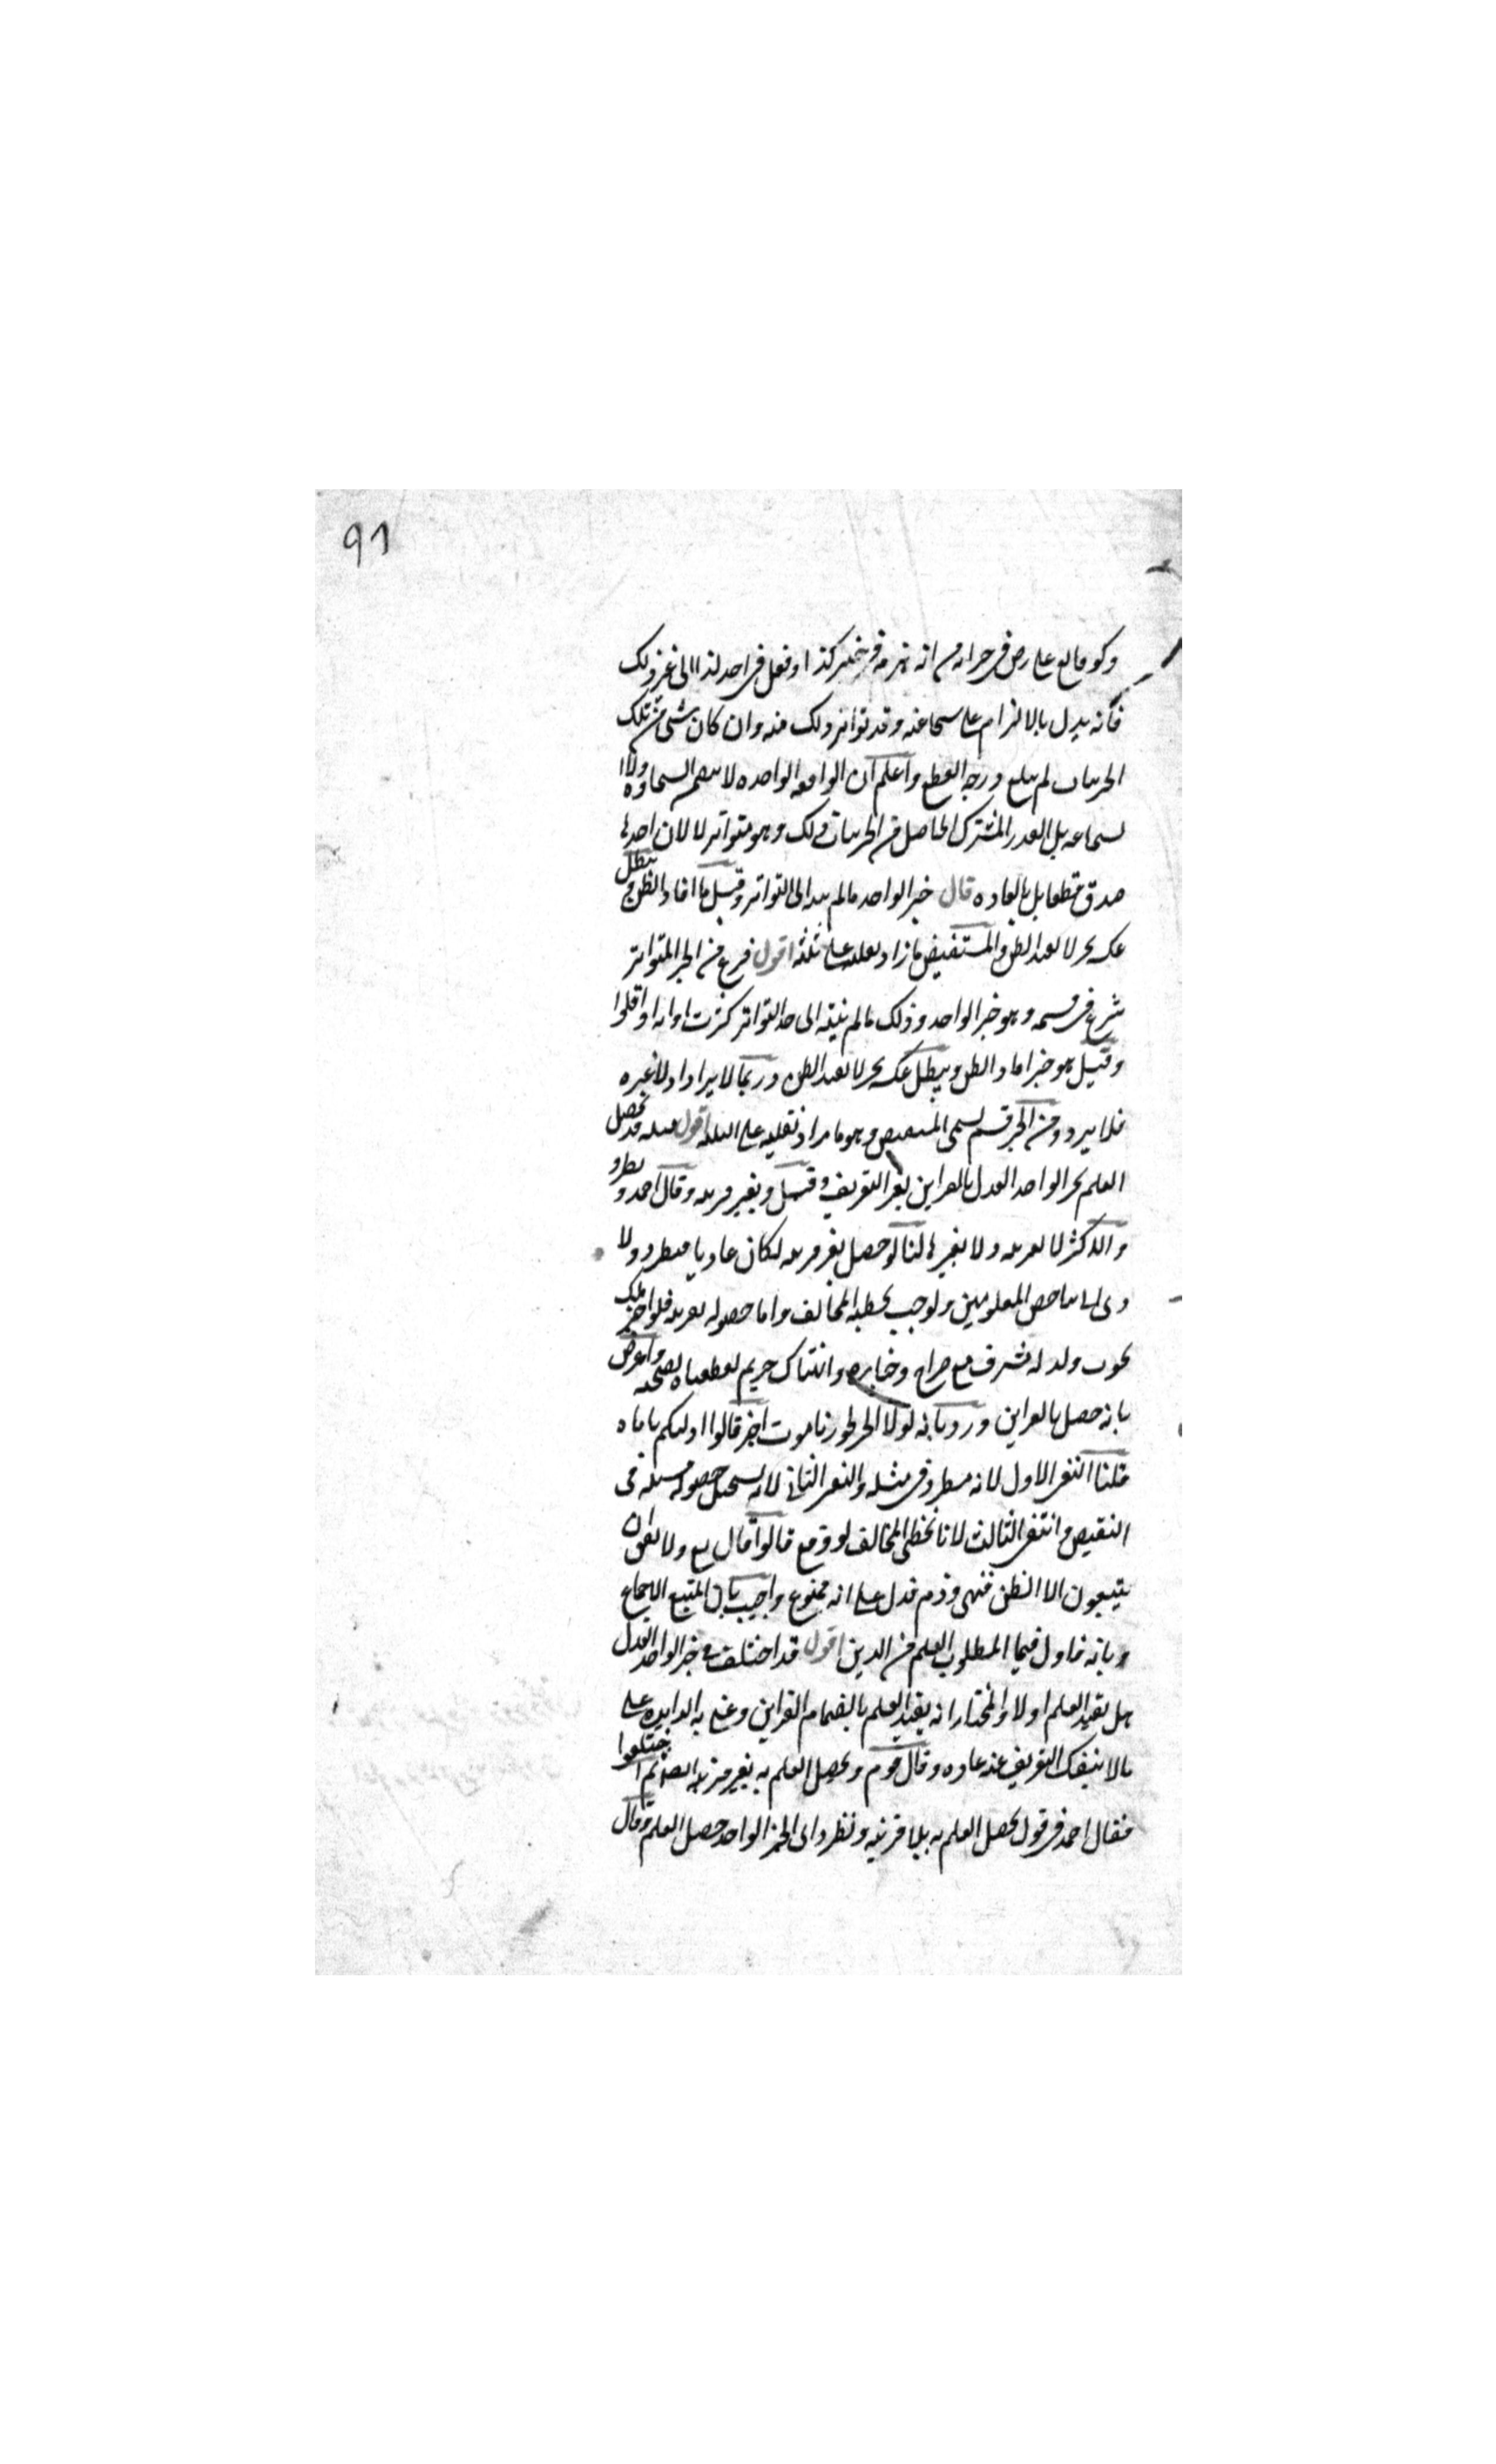 91
وكوقايع علي رض في حرابه من انه هزم في خيبر كذا وفعل في احد كذا الى غير ذلك
فانه يدل بالالتزام على شجاعته وقد تواتر ذلك منه وان كان شئ من تلك
الجزييات لم يبلغ درجة القطع واعلم ان الواقعة الواحده لا تتضمن السخاوه ولا
الشجاعه بل القدر المشترك الحاصل من الجزييات ذلك وهو متواتر لا لان احدها
صدق قطعا بل بالعاده قال خبر الواحد مالم ينته الى التواتر وقيل ما افاد الظن ويبطل
عكسه بخبر لا يفيد الظن والمستفيض ما زاد نقلته على ثلثه اقول فرغ من الخبر المتواتر
شرع في قسيمه وهو خبر الواحد وذلك مالم ينته الى حد التواتر كثرت رواته او قلوا
وقيل هو خبر افاد الظن ويبطل عكسه بخبر لا يفيد الظن وربما لا يراد اولا غيره
فلا يرد ومن الخبر قسم يسمى المستفيض وهو ما زاد نقلته على الثلثه اقول مسئله قد يحصل
العلم بخبر الواحد العدل بالقراين بغير التعريف وقيل وبغير قرينه وقال احمد ويطرد
والاكثر لا بقرينه ولا بغيرها لنا لو حصل بغير قرينه لكان عاديا فيطرد ولا
دى الى تناقض المعلومين ولوجب تخطئه المخالف واما حصوله بقرينه فلو اخبر ملك
بموت ولد له مشرف مع صراخ وجنازه وانتهاك حريم لقطعنا بصحته واعترض
بانه حصل بالقراين ورد بانه لولا الخبر لجوزنا موت اخر قالوا ادلتكم تاباه
قلنا انتفى الاول لانه مطرد في مثله وانتفى الثاني لانه يستحيل حصول مثله في
النقيض وانتفى الثالث لانا نخطي المخالف لو وقع قالوا قال تع ولا تقف ان
يتبعون الا الظن فنهى وذم فدل على انه ممنوع واجيب بان المتبع الاجماع
وبانه ماول فيما المطلوب العلم من الدين اقول قد اختلف في خبر الواحد العدل
هل يفيد العلم اولا والمختار انه يفيد العلم بانضمام القراين وعني به الزايده على
مالا ينفك التعريف عنه عاده وقال قوم ويحصل العلم به بغير قرينه ايضا ثم اختلفوا
فقال احمد في قول يحصل العلم به بلا قرينه ويطرد اى الخبر الواحد حصل العلم وقال